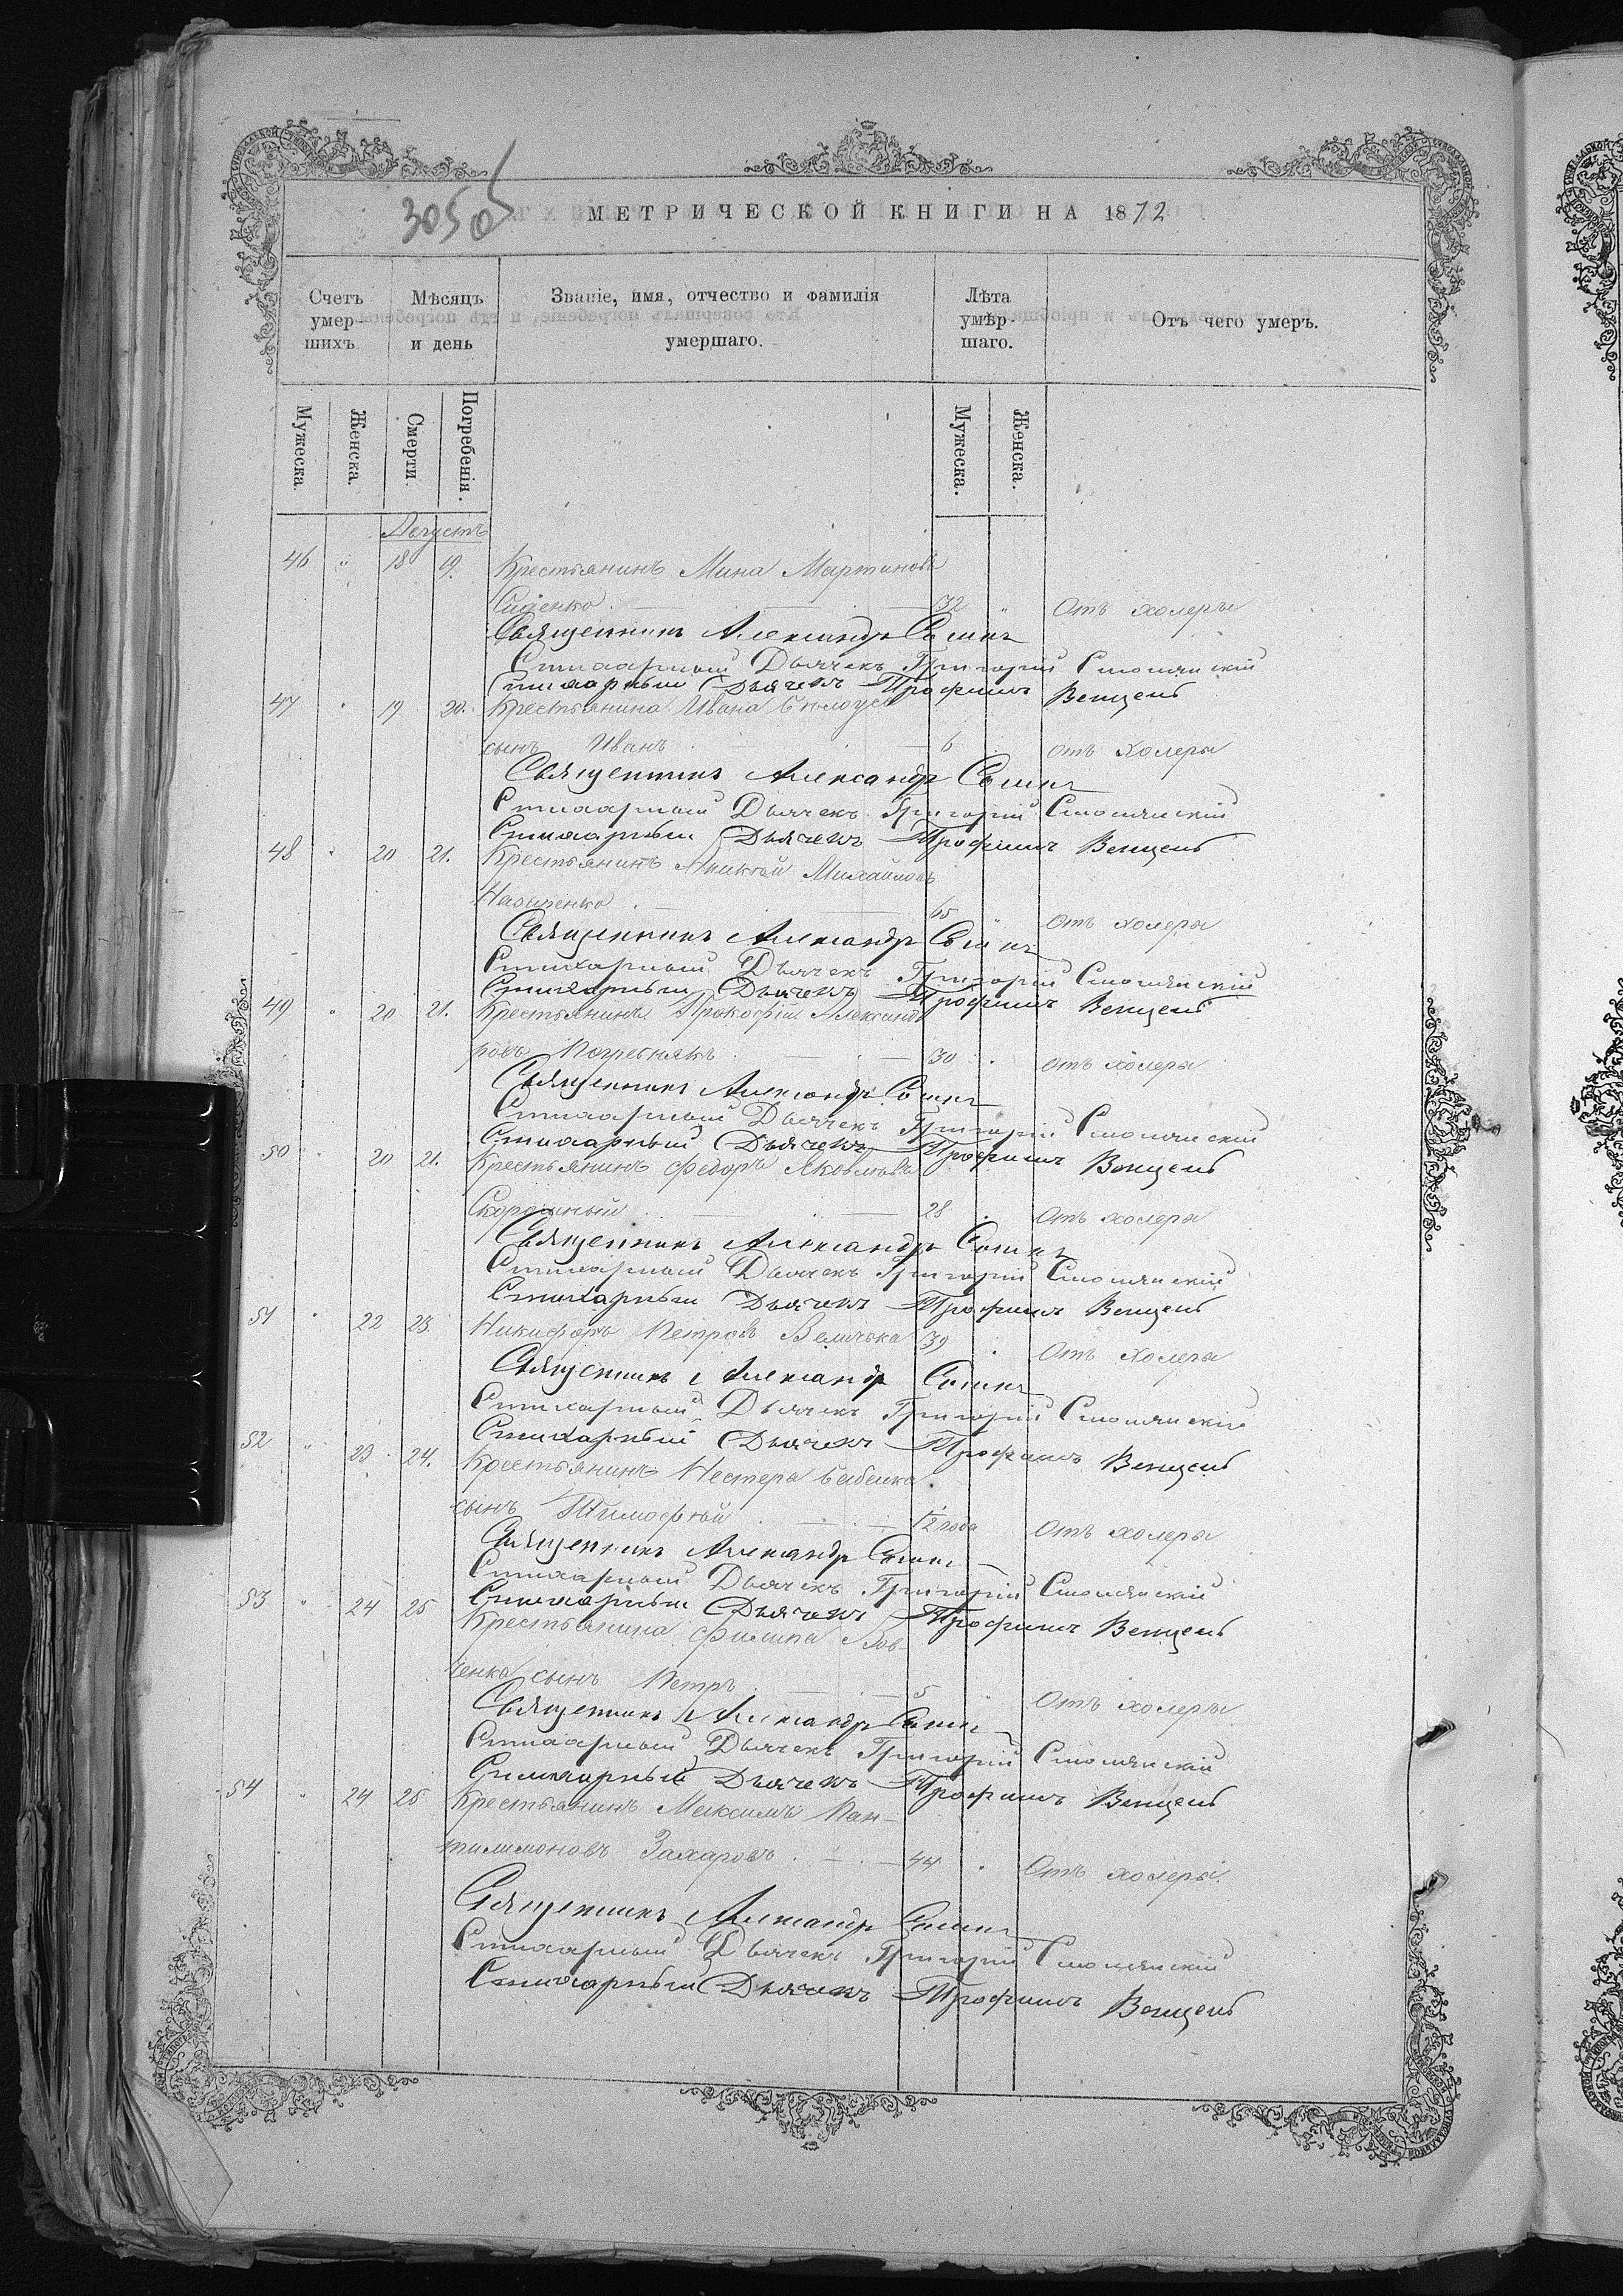 3050
МЕТРИЧЕСКОЙ КНИГИ НА 1872
Счетъ умер-шихъ.
Мѣсяцъ и день
Званіе, имя, отчество и фамилія умершаго.
Лѣта умѣр-шаго.
Отъ чего умеръ.
Мужеска. Женска. Смерти. Погребенія. Мужеска. Женска.
Августъ
46 " 18 19. Крестьянинъ Мина Мартиновъ
32 " Отъ холеры
Священникъ Александръ
Стихарный Дьячекъ Григорій
Стихарный Дьячекъ Трофимъ Венцель
47 " 19 20. Крестьянина Ивана Бѣлоуса
сынъ Иванъ 6 отъ холеры
Священникъ Александръ
Стихарный Дьячекъ Григорій
Стихарный Дьячекъ Трофимъ Венцель
48 " 20 21. Крестьянинъ Михайловъ
65 " отъ холеры
Священникъ Александръ
Стихарный Дьячекъ Григорій
Стихарный Дьячекъ Трофимъ Венцель
49 " 20 21. Крестьянинъ Прокофій Александ
ровъ Погребнякъ 30 " отъ холеры
Священникъ Александръ
Стихарный Дьячекъ Григорій
Стихарный Дьячекъ Трофимъ Венцель
50 " 20 21. Крестьянинъ Федоръ Яковлевъ
28 " Отъ холеры
Священникъ Александръ
Стихарный Дьячекъ Григорій
Стихарный Дьячекъ Трофимъ Венцель
51 " 22 23. Никифоръ Петровъ Величка 39 " Отъ холеры
Священникъ Александръ
Стихарный Дьячекъ Григорій
Стихарный Дьячекъ Трофимъ Венцель
52 " 23 24. Крестьянинъ Нестера Бабенка
сынъ Тимофѣй 1/2 года Отъ холеры
Священникъ Александръ
Стихарный Дьячекъ Григорій
Стихарный Дьячекъ Трофимъ Венцель
53 " 24 25 Крестьянина Филипа Вов
ченка сынъ Петръ 5 " Отъ холеры
Священникъ Александръ
Стихарный Дьячекъ Григорій
Стихарный Дьячекъ Трофимъ Венцель
54 " 24 25 Крестьянинъ Максимъ Пан-
тилимоновъ Захаровъ 44 " Отъ холеры.
Священникъ Александръ
Стихарный Дьячекъ Григорій
Стихарный Дьячекъ Трофимъ Венцель